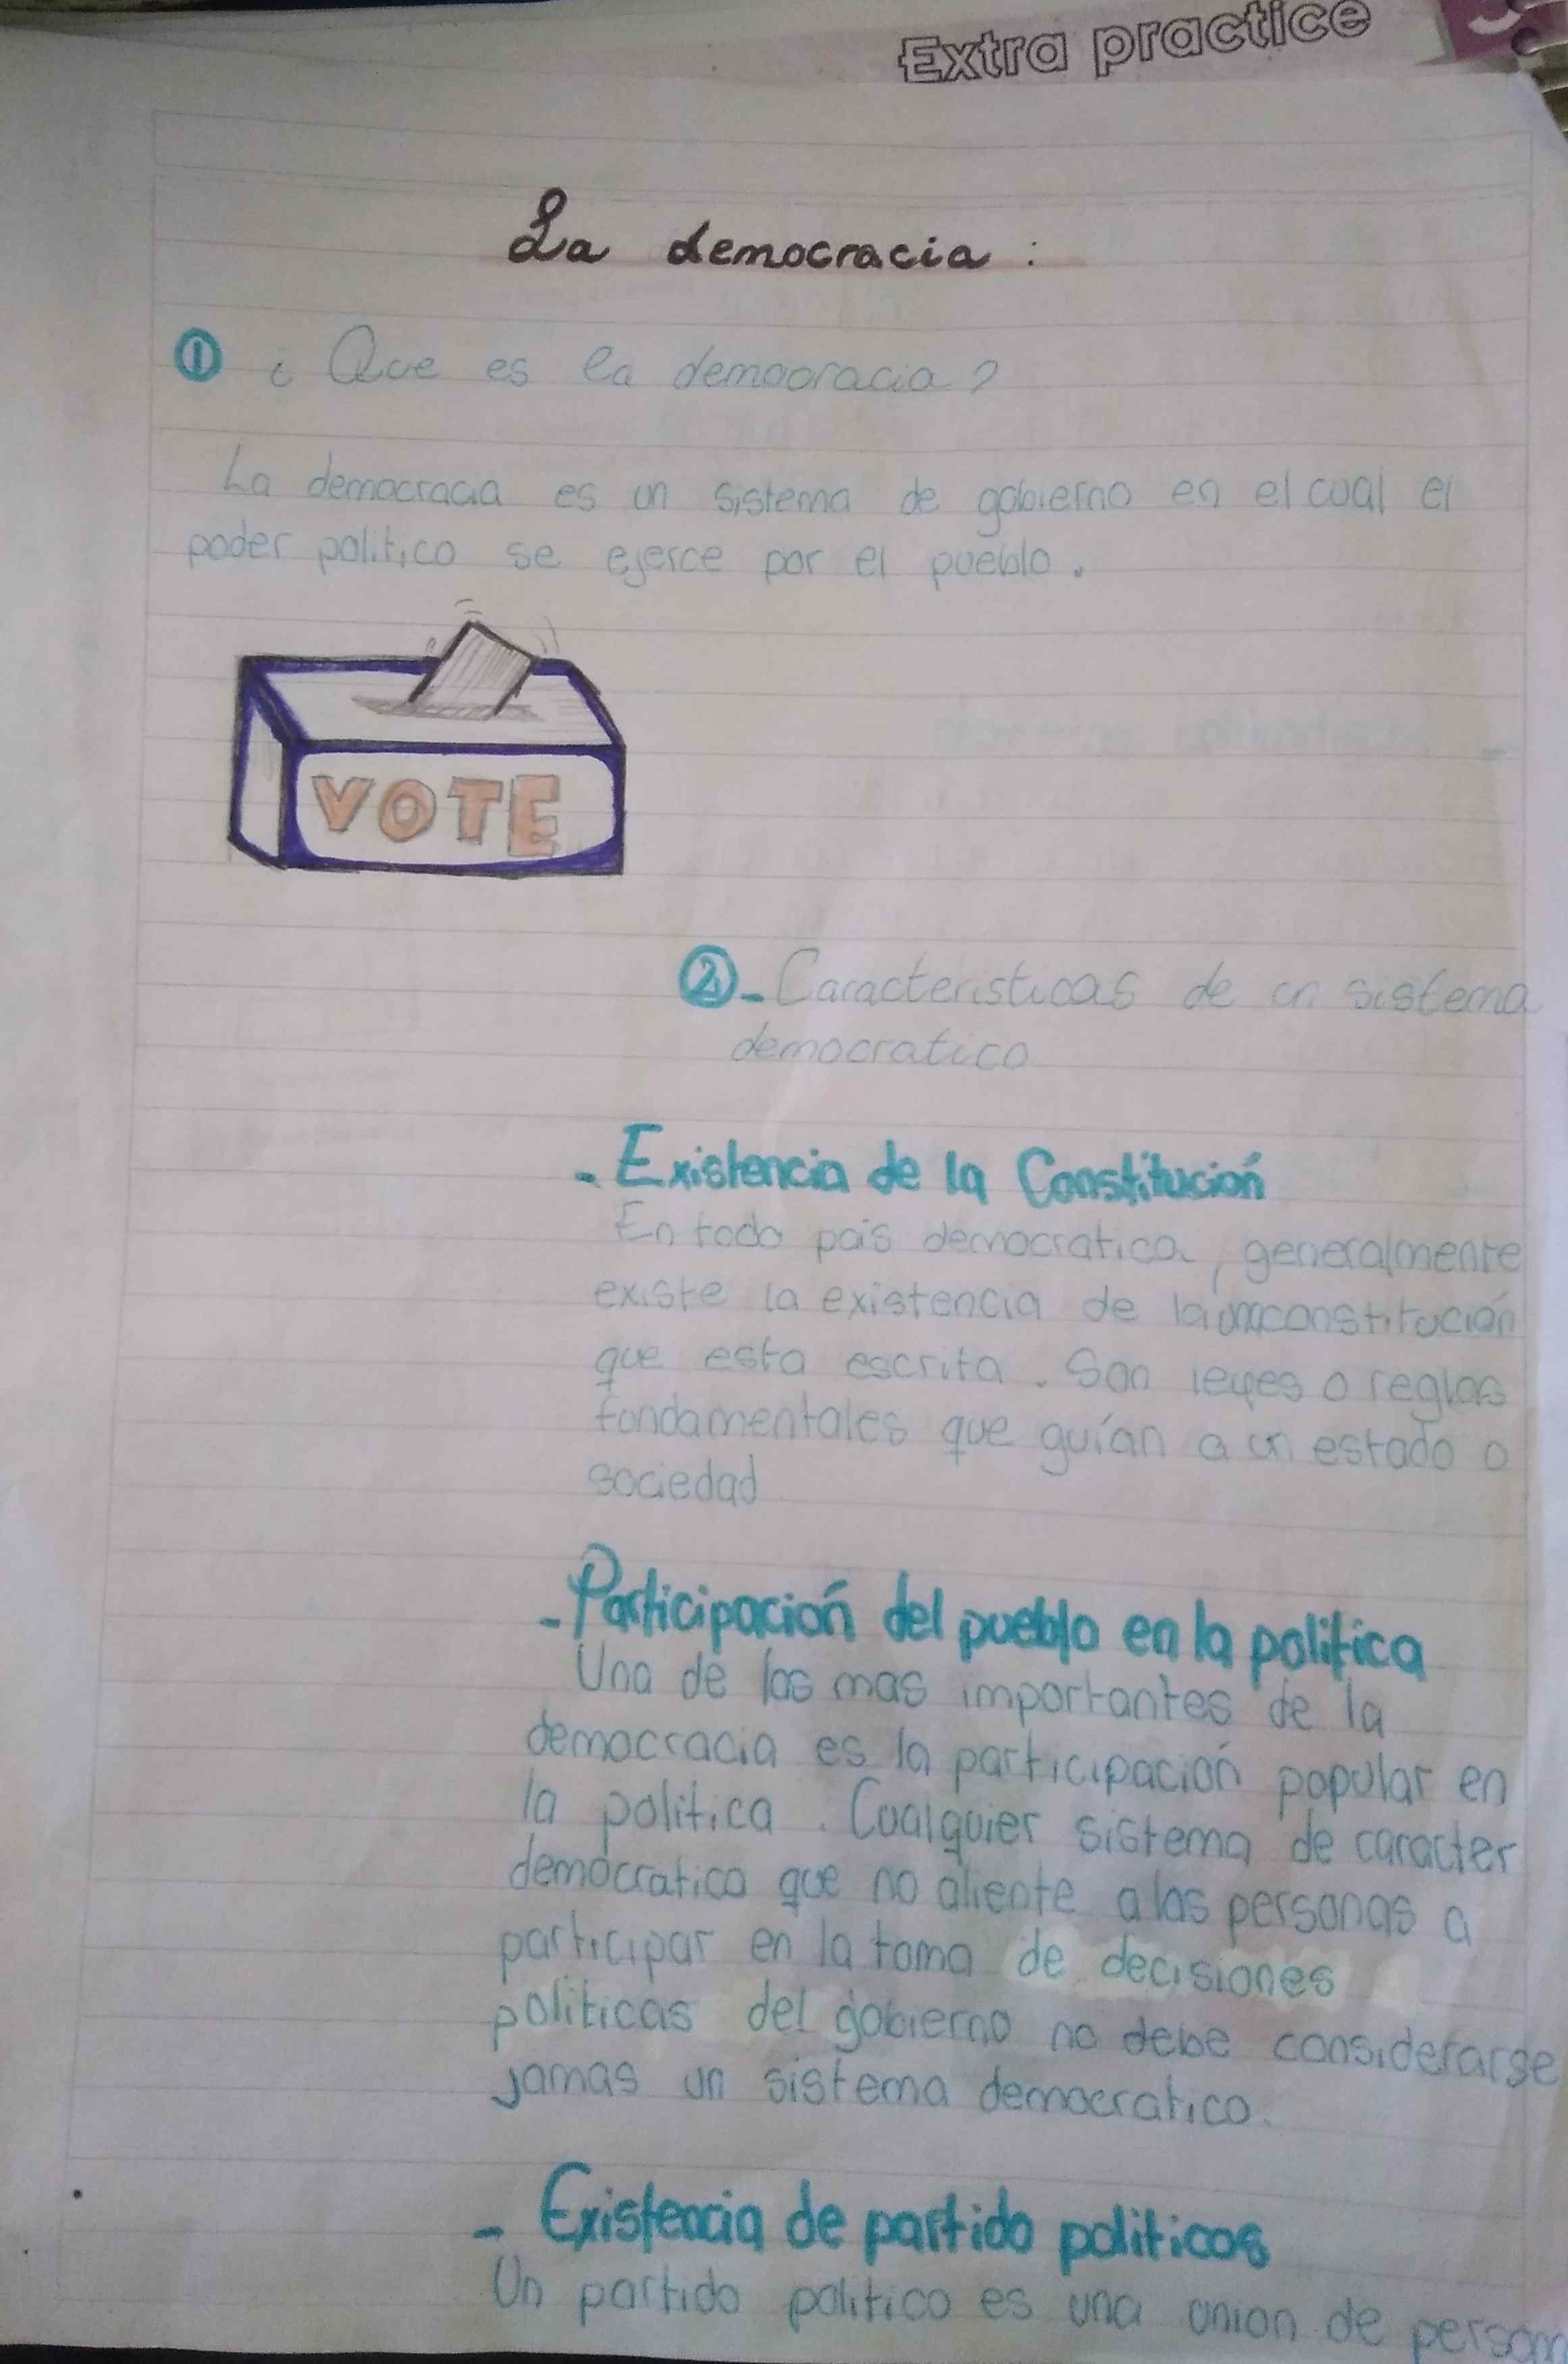 Extra practice
La democracia :
① ¿ Que es la democracia ?
La democracia es un sistema de gobierno en el cual el
poder politico se ejerce por el pueblo .
VOTE
②- Caracteristicas de un sistema
democratico
- Existencia de la Constitución
En todo pais democratica, generalmente
existe la existencia de la constitución
que esta escrita . Son leyes o reglas
fundamentales que guían a un estado o
sociedad
- Participación del pueblo en la politica
Una de las mas importantes de la
democracia es la participación popular en
la politica . Cualquier sistema de caracter
democratico que no aliente a las personas a
participar en la toma de decisiones
politicas del gobierno no debe considerarse
jamas un sistema democratico.
- Existencia de partido politicos
Un partido politico es una union de person